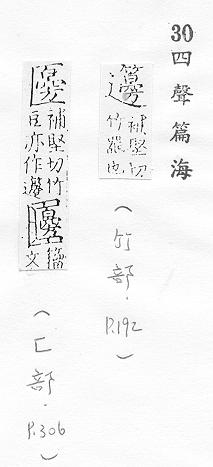 30 四聲篇海
籩 補堅切
竹器也
(竹部. P.192)
補堅切竹
亦作籩
籀文
(匚部. P.306)